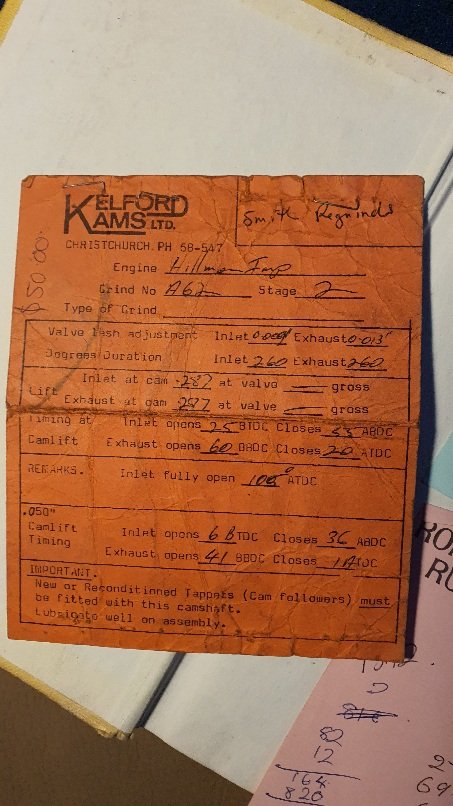 KELFORD
KAMS LTD.
Smith Regrinds
CHRISTCHURCH. PH 58-547
$50.00
Engine Hillman Imp
Grind No A62 Stage 2
Type of Grind
Valve lash adjustment Inlet Exhaust 0.013"
Degrees Duration Inlet 260 Exhaust 260
Inlet at cam .287 at valve gross
Lift
Exhaust at cam at valve gross
Timing at Inlet opens 25 BTDC Closes 55 ABDC
Camlift Exhaust opens 60 BBDC Closes 20 ATDC
REMARKS. Inlet fully open ATDC
.050"
Camlift Inlet opens 6 BTDC Closes 36 ABDC
Timing
Exhaust opens 41 BBDC Closes 1 ATDC
IMPORTANT.
New or Reconditioned Tappets (Cam followers) must
be fitted with this camshaft.
Lubricate well on assembly.
RO
RU
82
12
164
820
2
69